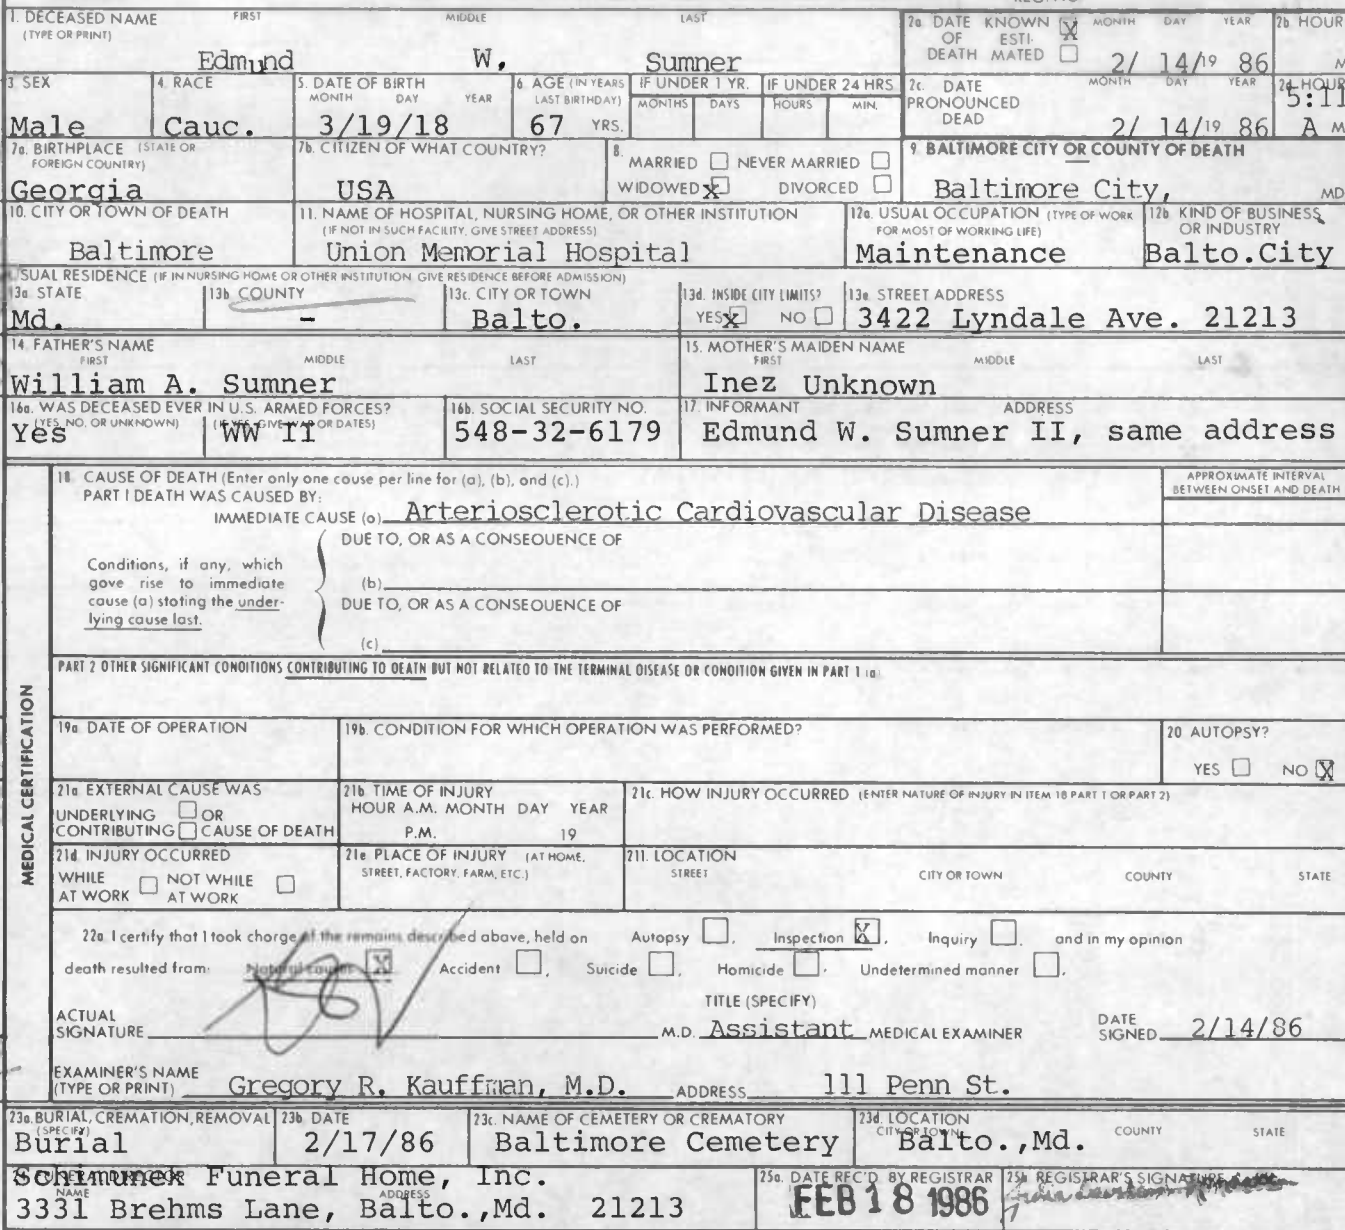 1. DECEASED NAME FIRST MIDDLE LAST
(TYPE OR PRINT)
Edmund W. Sumner
2a. DATE KNOWN X MONTH DAY YEAR
OF ESTI-
DEATH MATED 2/ 14/19 86
2b HOUR
M
3 SEX
Male
4. RACE
Cauc.
5. DATE OF BIRTH
MONTH DAY YEAR
3/19/18
6. AGE (IN YEARS
LAST BIRTHDAY)
67 YRS.
IF UNDER 1 YR.
MONTHS DAYS
IF UNDER 24 HRS
HOURS MIN.
2c. DATE MONTH DAY YEAR
PRONOUNCED
DEAD 2/ 14/19 86
2d HOUR
5:11
A M
7a. BIRTHPLACE (STATE OR
FOREIGN COUNTRY)
Georgia
7b. CITIZEN OF WHAT COUNTRY?
USA
8.
MARRIED NEVER MARRIED
WIDOWED X DIVORCED
9. BALTIMORE CITY OR COUNTY OF DEATH
Baltimore City, MD
10. CITY OR TOWN OF DEATH
Baltimore
11. NAME OF HOSPITAL, NURSING HOME, OR OTHER INSTITUTION
(IF NOT IN SUCH FACILITY, GIVE STREET ADDRESS)
Union Memorial Hospital
12a. USUAL OCCUPATION (TYPE OF WORK
FOR MOST OF WORKING LIFE)
Maintenance
12b. KIND OF BUSINESS
OR INDUSTRY
Balto.City
USUAL RESIDENCE (IF IN NURSING HOME OR OTHER INSTITUTION GIVE RESIDENCE BEFORE ADMISSION)
13a. STATE
Md.
13b COUNTY
-
13c. CITY OR TOWN
Balto.
13d. INSIDE CITY LIMITS?
YES X NO
13e. STREET ADDRESS
3422 Lyndale Ave. 21213
14. FATHER'S NAME
FIRST MIDDLE LAST
William A. Sumner
15. MOTHER'S MAIDEN NAME
FIRST MIDDLE LAST
Inez Unknown
16a. WAS DECEASED EVER IN U.S. ARMED FORCES?
(YES, NO, OR UNKNOWN) (IF YES, GIVE WAR OR DATES)
Yes WW II
16b. SOCIAL SECURITY NO.
548-32-6179
17. INFORMANT ADDRESS
Edmund W. Sumner II, same address
18. CAUSE OF DEATH (Enter only one cause per line for (a), (b), and (c).)
PART I DEATH WAS CAUSED BY:
IMMEDIATE CAUSE (a) Arteriosclerotic Cardiovascular Disease
APPROXIMATE INTERVAL
BETWEEN ONSET AND DEATH
DUE TO, OR AS A CONSEQUENCE OF
Conditions, if any, which
gave rise to immediate
cause (a) stating the under-
lying cause last.
(b)
DUE TO, OR AS A CONSEQUENCE OF
(c)
PART 2 OTHER SIGNIFICANT CONDITIONS CONTRIBUTING TO DEATH BUT NOT RELATED TO THE TERMINAL DISEASE OR CONDITION GIVEN IN PART 1 (a)
MEDICAL CERTIFICATION
19a. DATE OF OPERATION
19b. CONDITION FOR WHICH OPERATION WAS PERFORMED?
20 AUTOPSY?
YES NO X
21a EXTERNAL CAUSE WAS
UNDERLYING OR
CONTRIBUTING CAUSE OF DEATH
21b TIME OF INJURY
HOUR A.M. MONTH DAY YEAR
P.M. 19
21c. HOW INJURY OCCURRED (ENTER NATURE OF INJURY IN ITEM 18 PART 1 OR PART 2)
21d INJURY OCCURRED
WHILE NOT WHILE
AT WORK AT WORK
21e PLACE OF INJURY (AT HOME,
STREET, FACTORY, FARM, ETC.)
21f. LOCATION
STREET CITY OR TOWN COUNTY STATE
22a. I certify that I took charge of the remains described above, held on Autopsy , Inspection X , Inquiry , and in my opinion
death resulted from: Natural causes X Accident , Suicide , Homicide , Undetermined manner .
TITLE (SPECIFY)
ACTUAL
SIGNATURE M.D. Assistant MEDICAL EXAMINER
DATE
SIGNED 2/14/86
EXAMINER'S NAME
(TYPE OR PRINT) Gregory R. Kauffman, M.D. ADDRESS 111 Penn St.
23a. BURIAL, CREMATION, REMOVAL
(SPECIFY)
Burial
23b. DATE
2/17/86
23c. NAME OF CEMETERY OR CREMATORY
Baltimore Cemetery
23d. LOCATION
CITY OR TOWN COUNTY STATE
Balto.,Md.
FUNERAL DIRECTOR
Schimunek Funeral Home, Inc.
NAME ADDRESS
3331 Brehms Lane, Balto.,Md. 21213
25a. DATE REC'D BY REGISTRAR
FEB 18 1986
25b. REGISTRAR'S SIGNATURE